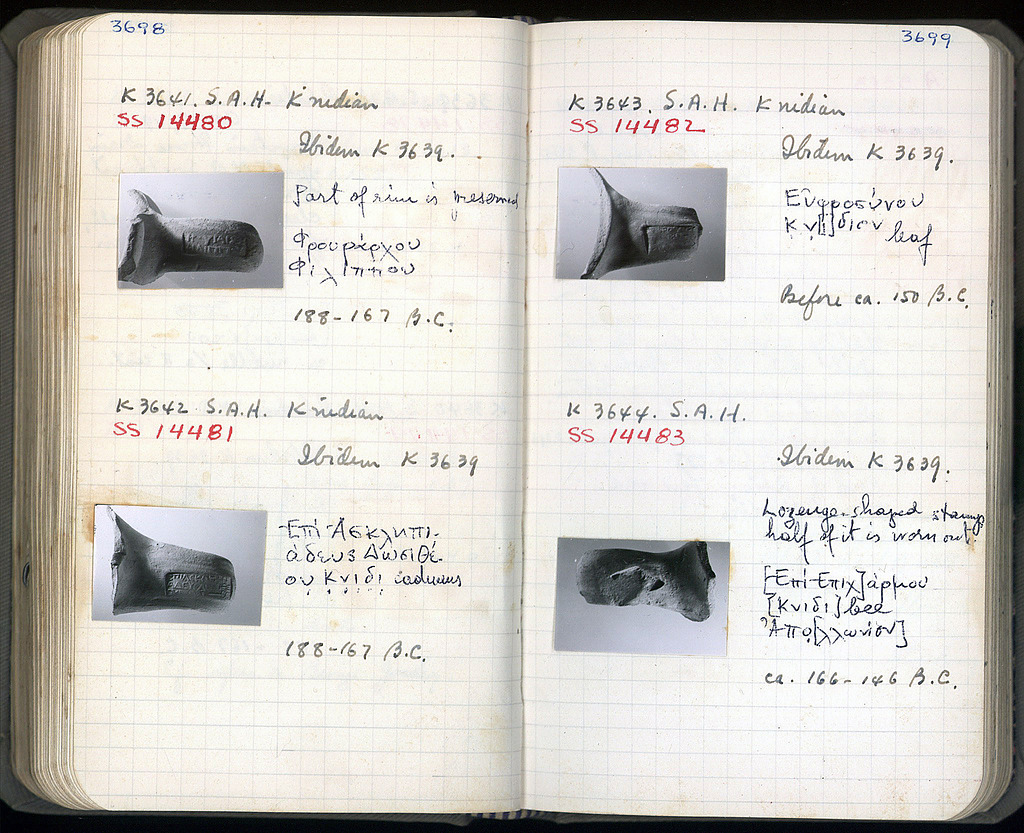 3698
K 3641. S.A.H. Knidian
SS 14480
Ibidem K 3639.
Part of rim is preserved
Φρουράρχου
Φιλίππου
188-167 B.C.
K 3642 S.A.H. Knidian
SS 14481
Ibidem K 3639
Ἐπὶ Ἀσκληπι-
άδευς Δωσιθέ-
ου Κνιδι caduceus
188-167 B.C.
3699
K 3643. S.A.H. Knidian
SS 14482
Ibidem K 3639.
Εὐφροσύνου
Κνι]δίον leaf
Before ca. 150 B.C.
K 3644. S.A.H.
SS 14483
Ibidem K 3639.
Lozenge-shaped stamp
half of it is worn out
[Ἐπὶ Ἐπιχ]άρμου
[Κνιδι] bee
Ἀπο[λλωνίου]
ca. 166-146 B.C.